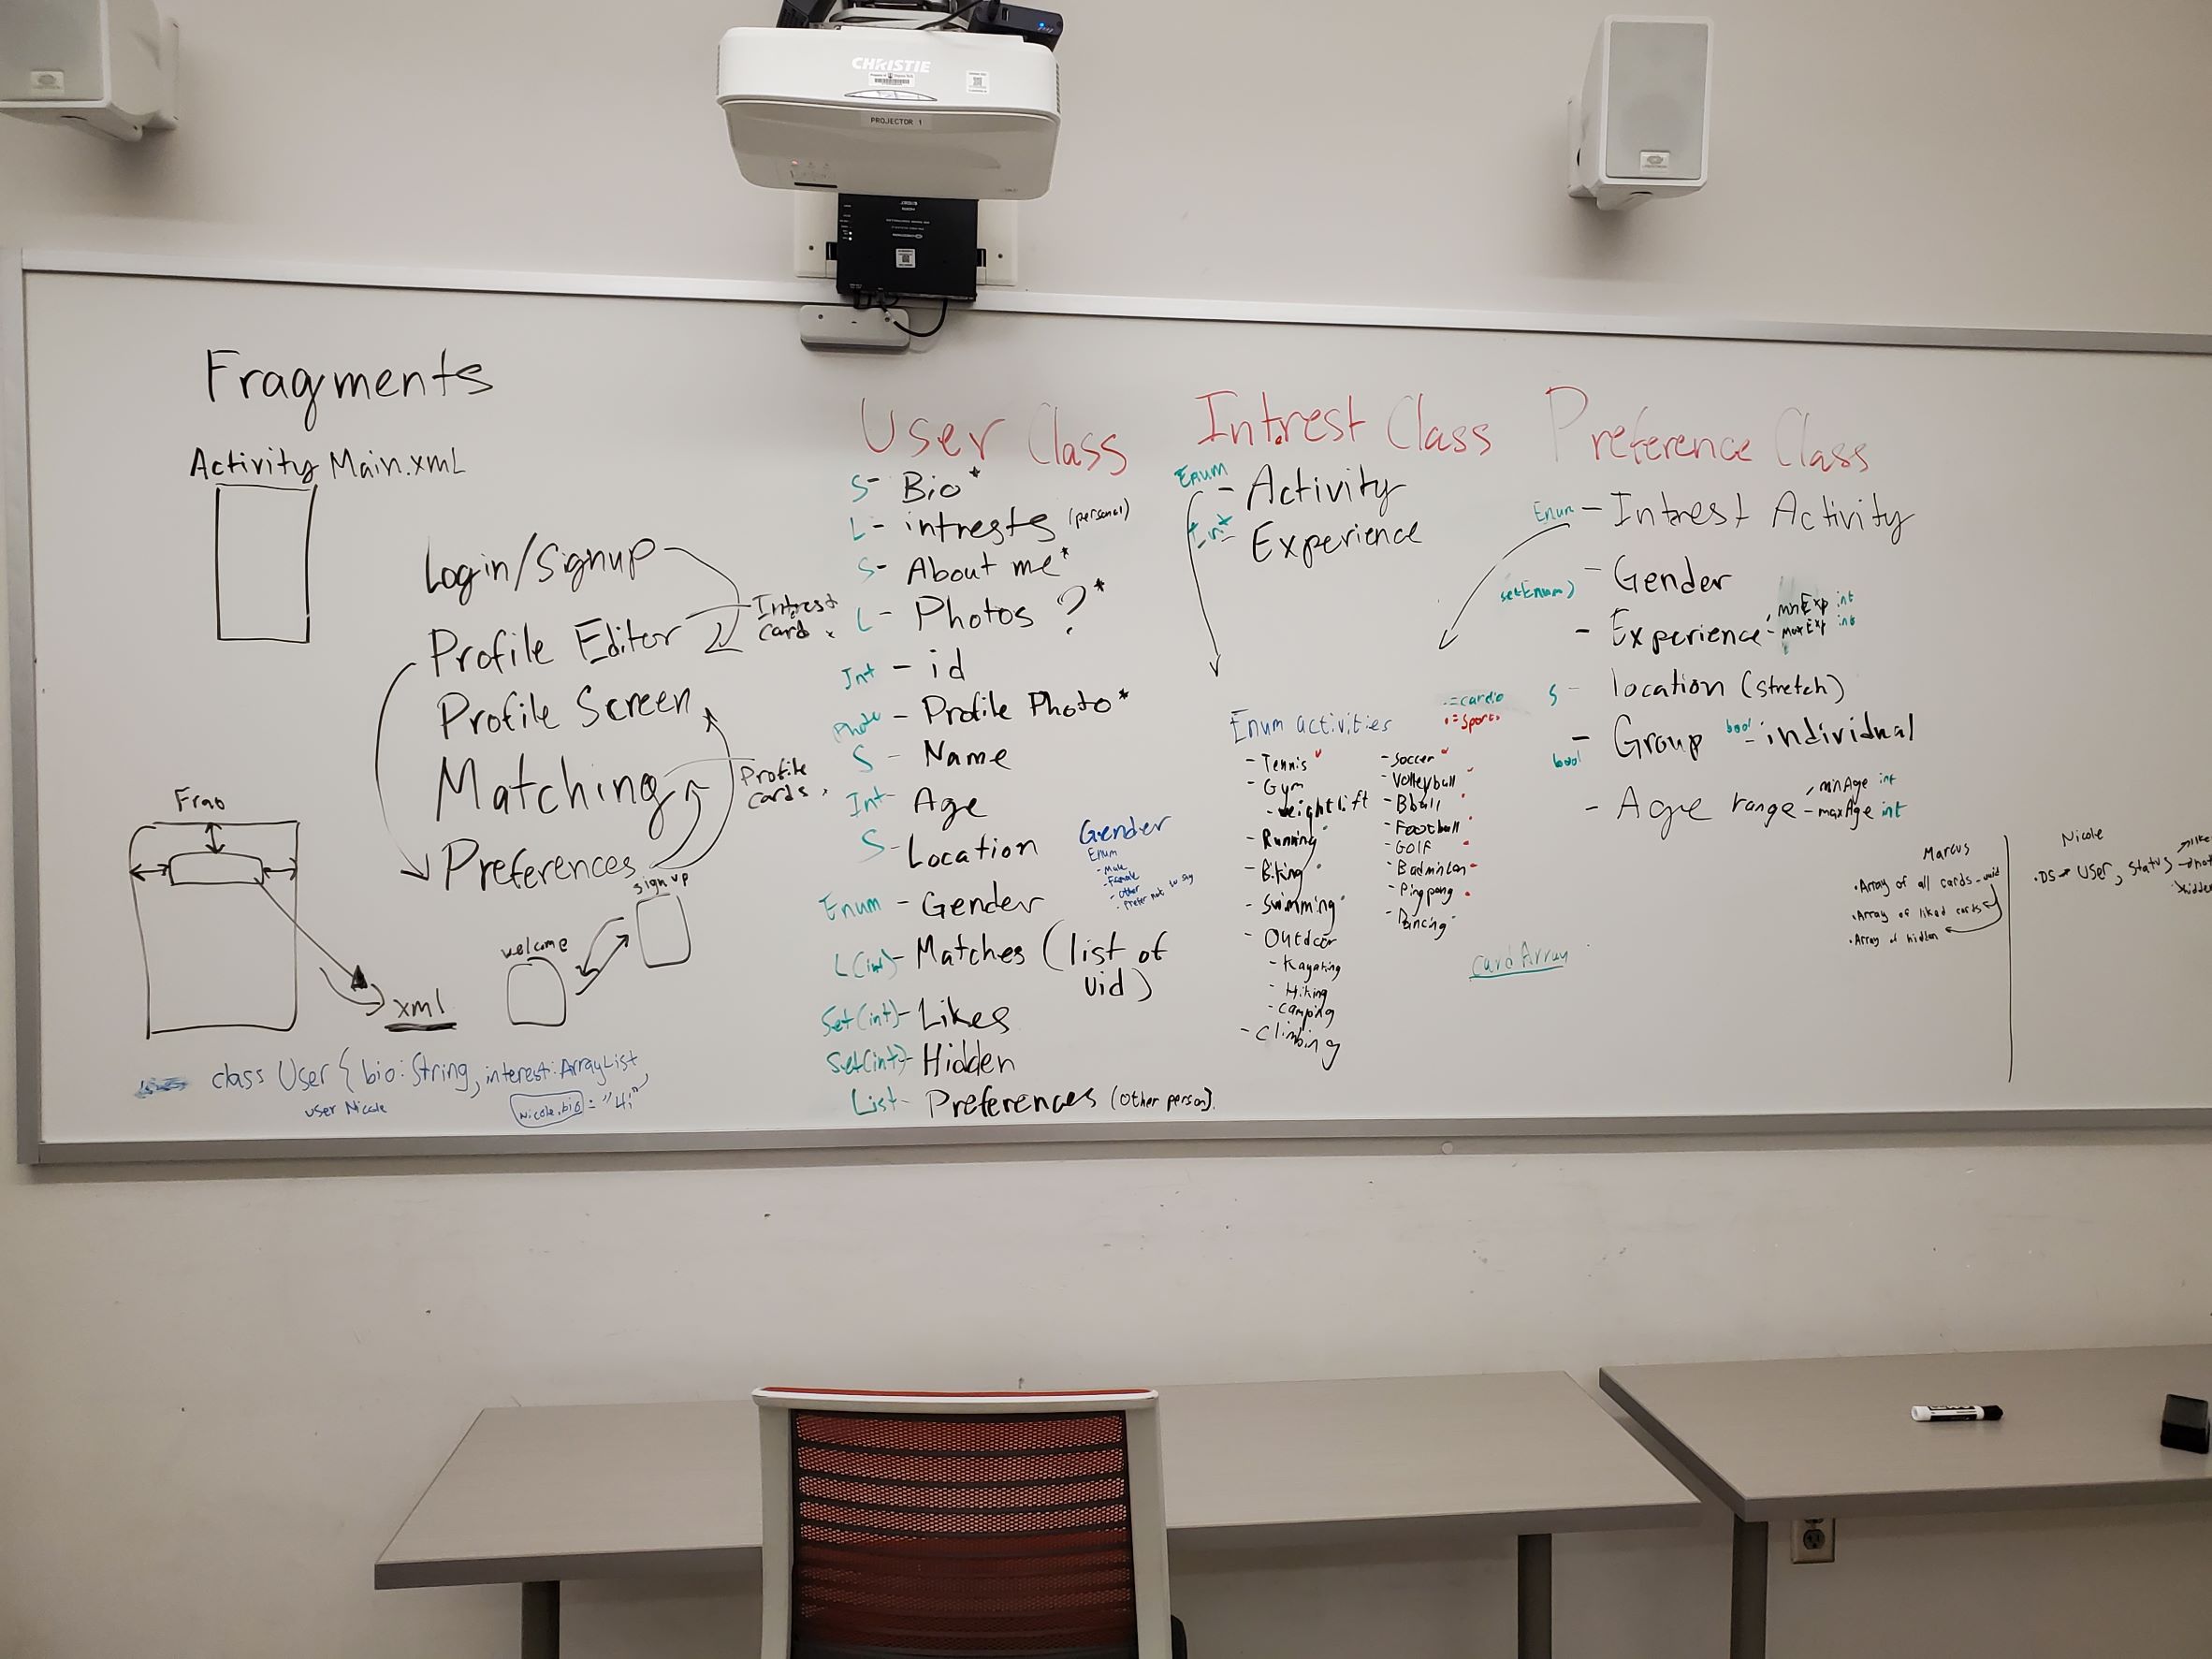 CHRISTIE
PROJECTOR 1
Fragments
Activity Main.xml
Login/Signup
Profile Editor
Profile Screen
Matching
Preferences
Intrest
card
Profile
cards
Frag
xml
welcome
sign up
class User { bio: String, interest: ArrayList
user Nicole
Nicole.bio = "Hi"
User Class
S- Bio*
L- intrests (personal)
S- About me*
L- Photos ?*
Int - id
Photo - Profile Photo*
S - Name
Int - Age
S - Location
Enum - Gender
L(int) - Matches (list of
uid)
Set(int) - Likes
Set(int) - Hidden
List - Preferences (other person)
Gender
Enum
- Male
- Female
- Other
- Prefer not to say
Intrest Class
Enum - Activity
Int - Experience
Enum activities
= cardio
= sports
- Tennis
- Gym
- weightlift
- Running
- Biking
- Swimming
- Outdoor
- Kayaking
- Hiking
- camping
- Climbing
- Soccer
- Volleyball
- Bball
- Football
- GOLF
- Badminton
- Pingpong
- Dancing
Card Array
Preference Class
Enum - Intrest Activity
- Gender
set(Enum)
- Experience - minExp int
- maxExp int
S - location (stretch)
bool - Group bool - individual
- Age range - minAge int
- maxAge int
Marcus
. Array of all cards - uid
. Array of liked cards
. Array of hidden
Nicole
. DS → User, Status → like
hidden